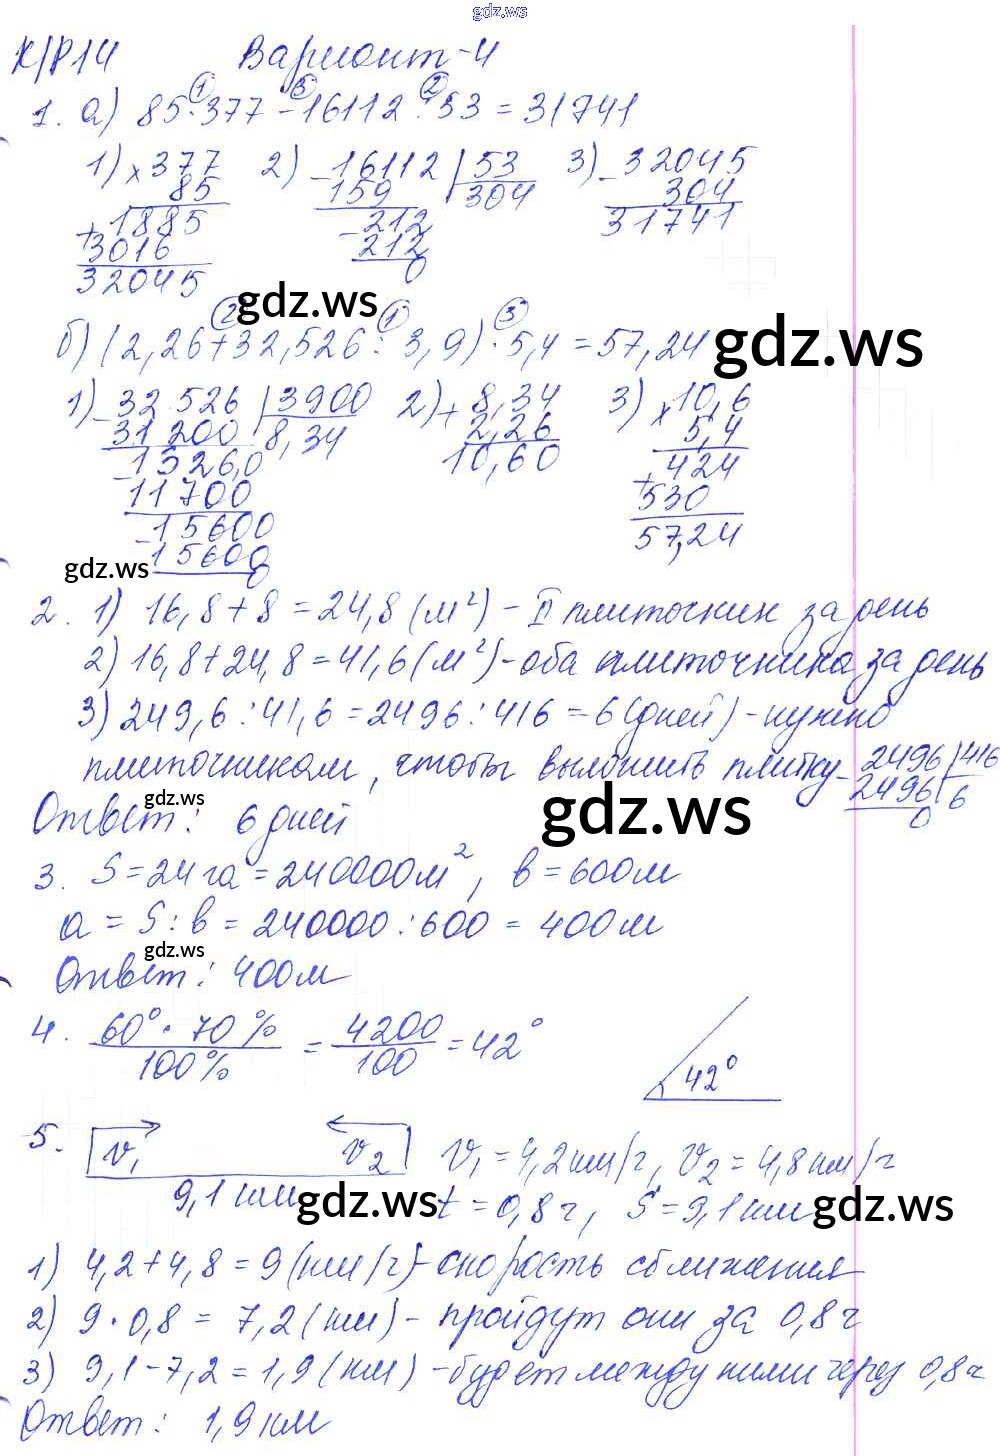 gdz.ws
К/Р14 Вариант-4
1. а) 85·377-16112:53=31741
1) ×377 2) -16112 | 53 3) -32045
85 159 304 304
+1885 -212 31741
3016 212
32045 0
gdz.ws
б) (2,26+32,526:3,9)·5,4=57,24
gdz.ws
1) -32 526 | 3900 2) + 8,34 3) ×10,6
31 200 8,34 2,26 5,4
-1326,0 10,60 +424
11700 530
-15600 57,24
15600
0
gdz.ws
2. 1) 16,8+8=24,8(м²)-II плиточник за день
2) 16,8+24,8=41,6(м²)-оба плиточника за день
3) 249,6:41,6=2496:416=6(дней)-нужно
плиточникам, чтобы выложить плитку -2496 | 416
2496 6
0
gdz.ws
Ответ: 6 дней
gdz.ws
3. S=24га=240000м², в=600м
а=S:в=240000:600=400м
gdz.ws
Ответ: 400м
4. 60°·70%/100% = 4200/100 = 42°
42°
5. v₁ v₂ v₁=4,2км/г, v₂=4,8км/г
9,1км t=0,8г, S=9,1км
gdz.ws gdz.ws
1) 4,2+4,8=9(км/г)-скорость сближения
2) 9·0,8=7,2(км)-пройдут они за 0,8г
3) 9,1-7,2=1,9(км)-будет между ними через 0,8г
Ответ: 1,9км